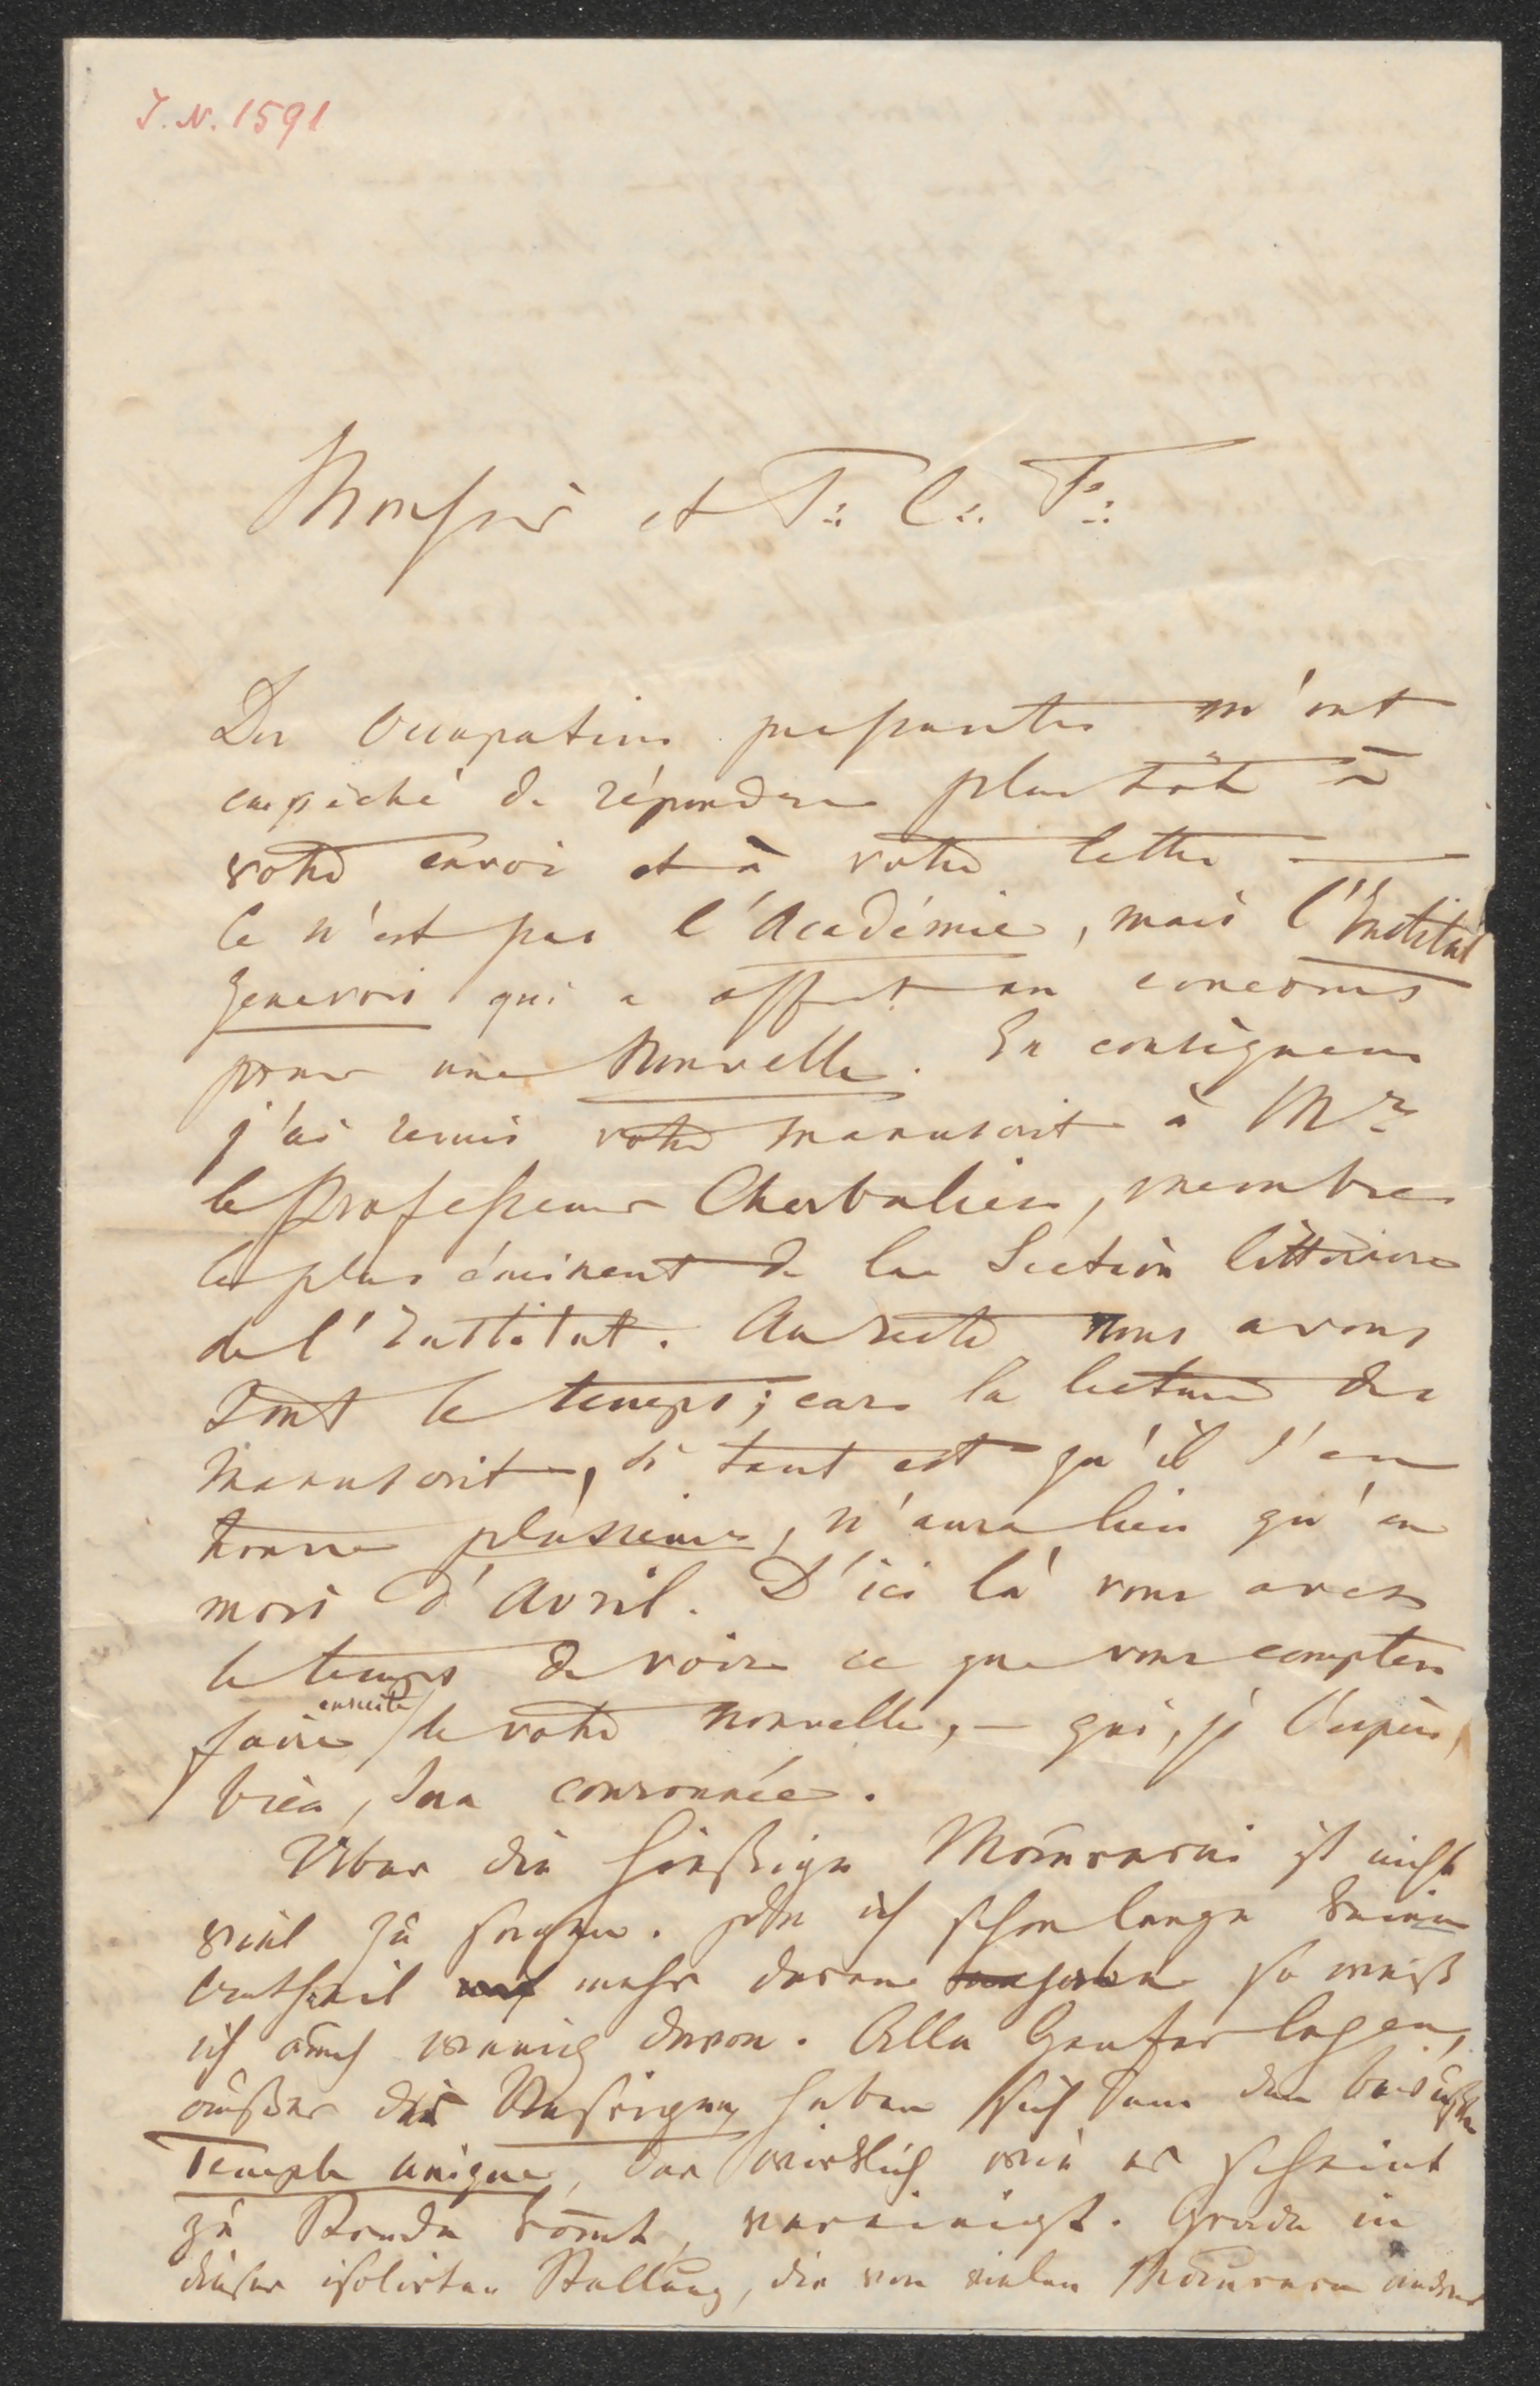 J. N. 1591
Monsieur et T∴ C∴ F∴
Des Occupations pressantes m'ont
empèché de répondre plus tôt à
votre envoi et à votre lettre —
Ce n'est pas l'Académie, mais l'Institut
Genevois qui a offert un concours
pour une Nouvelle. En conséquence
j'ai remis votre manuscrit à Mr
le Professeur Cherbuliez, membre
le plus éminent de la Section littéraire
de l'Institut. Au reste nous avons
tout le temps; car la lecture des
Manuscrits, si tant est qu'il s'en
trouve plusieurs, n'aura lieu qu'en
mois d'Avril. D'ici là vous avez
le temps de voir ce que vous comptez
faire ensuite de votre nouvelle, – qui, je l'espère,
bien, sera couronnée.
Über die hießige Maurerei ist nicht
viel zu sagen. Da ich schon lange keinen
Antheil mehr daran so weiß
ich auch wenig davon. Alle Genfer Logen,
außer der haben sich zum den bewußten
Temple unique, der wirklich wie es scheint
zu Stande kömt, vereinigt. Grade in
dieser isolirten Stellung, die von vielen Maurern andrer